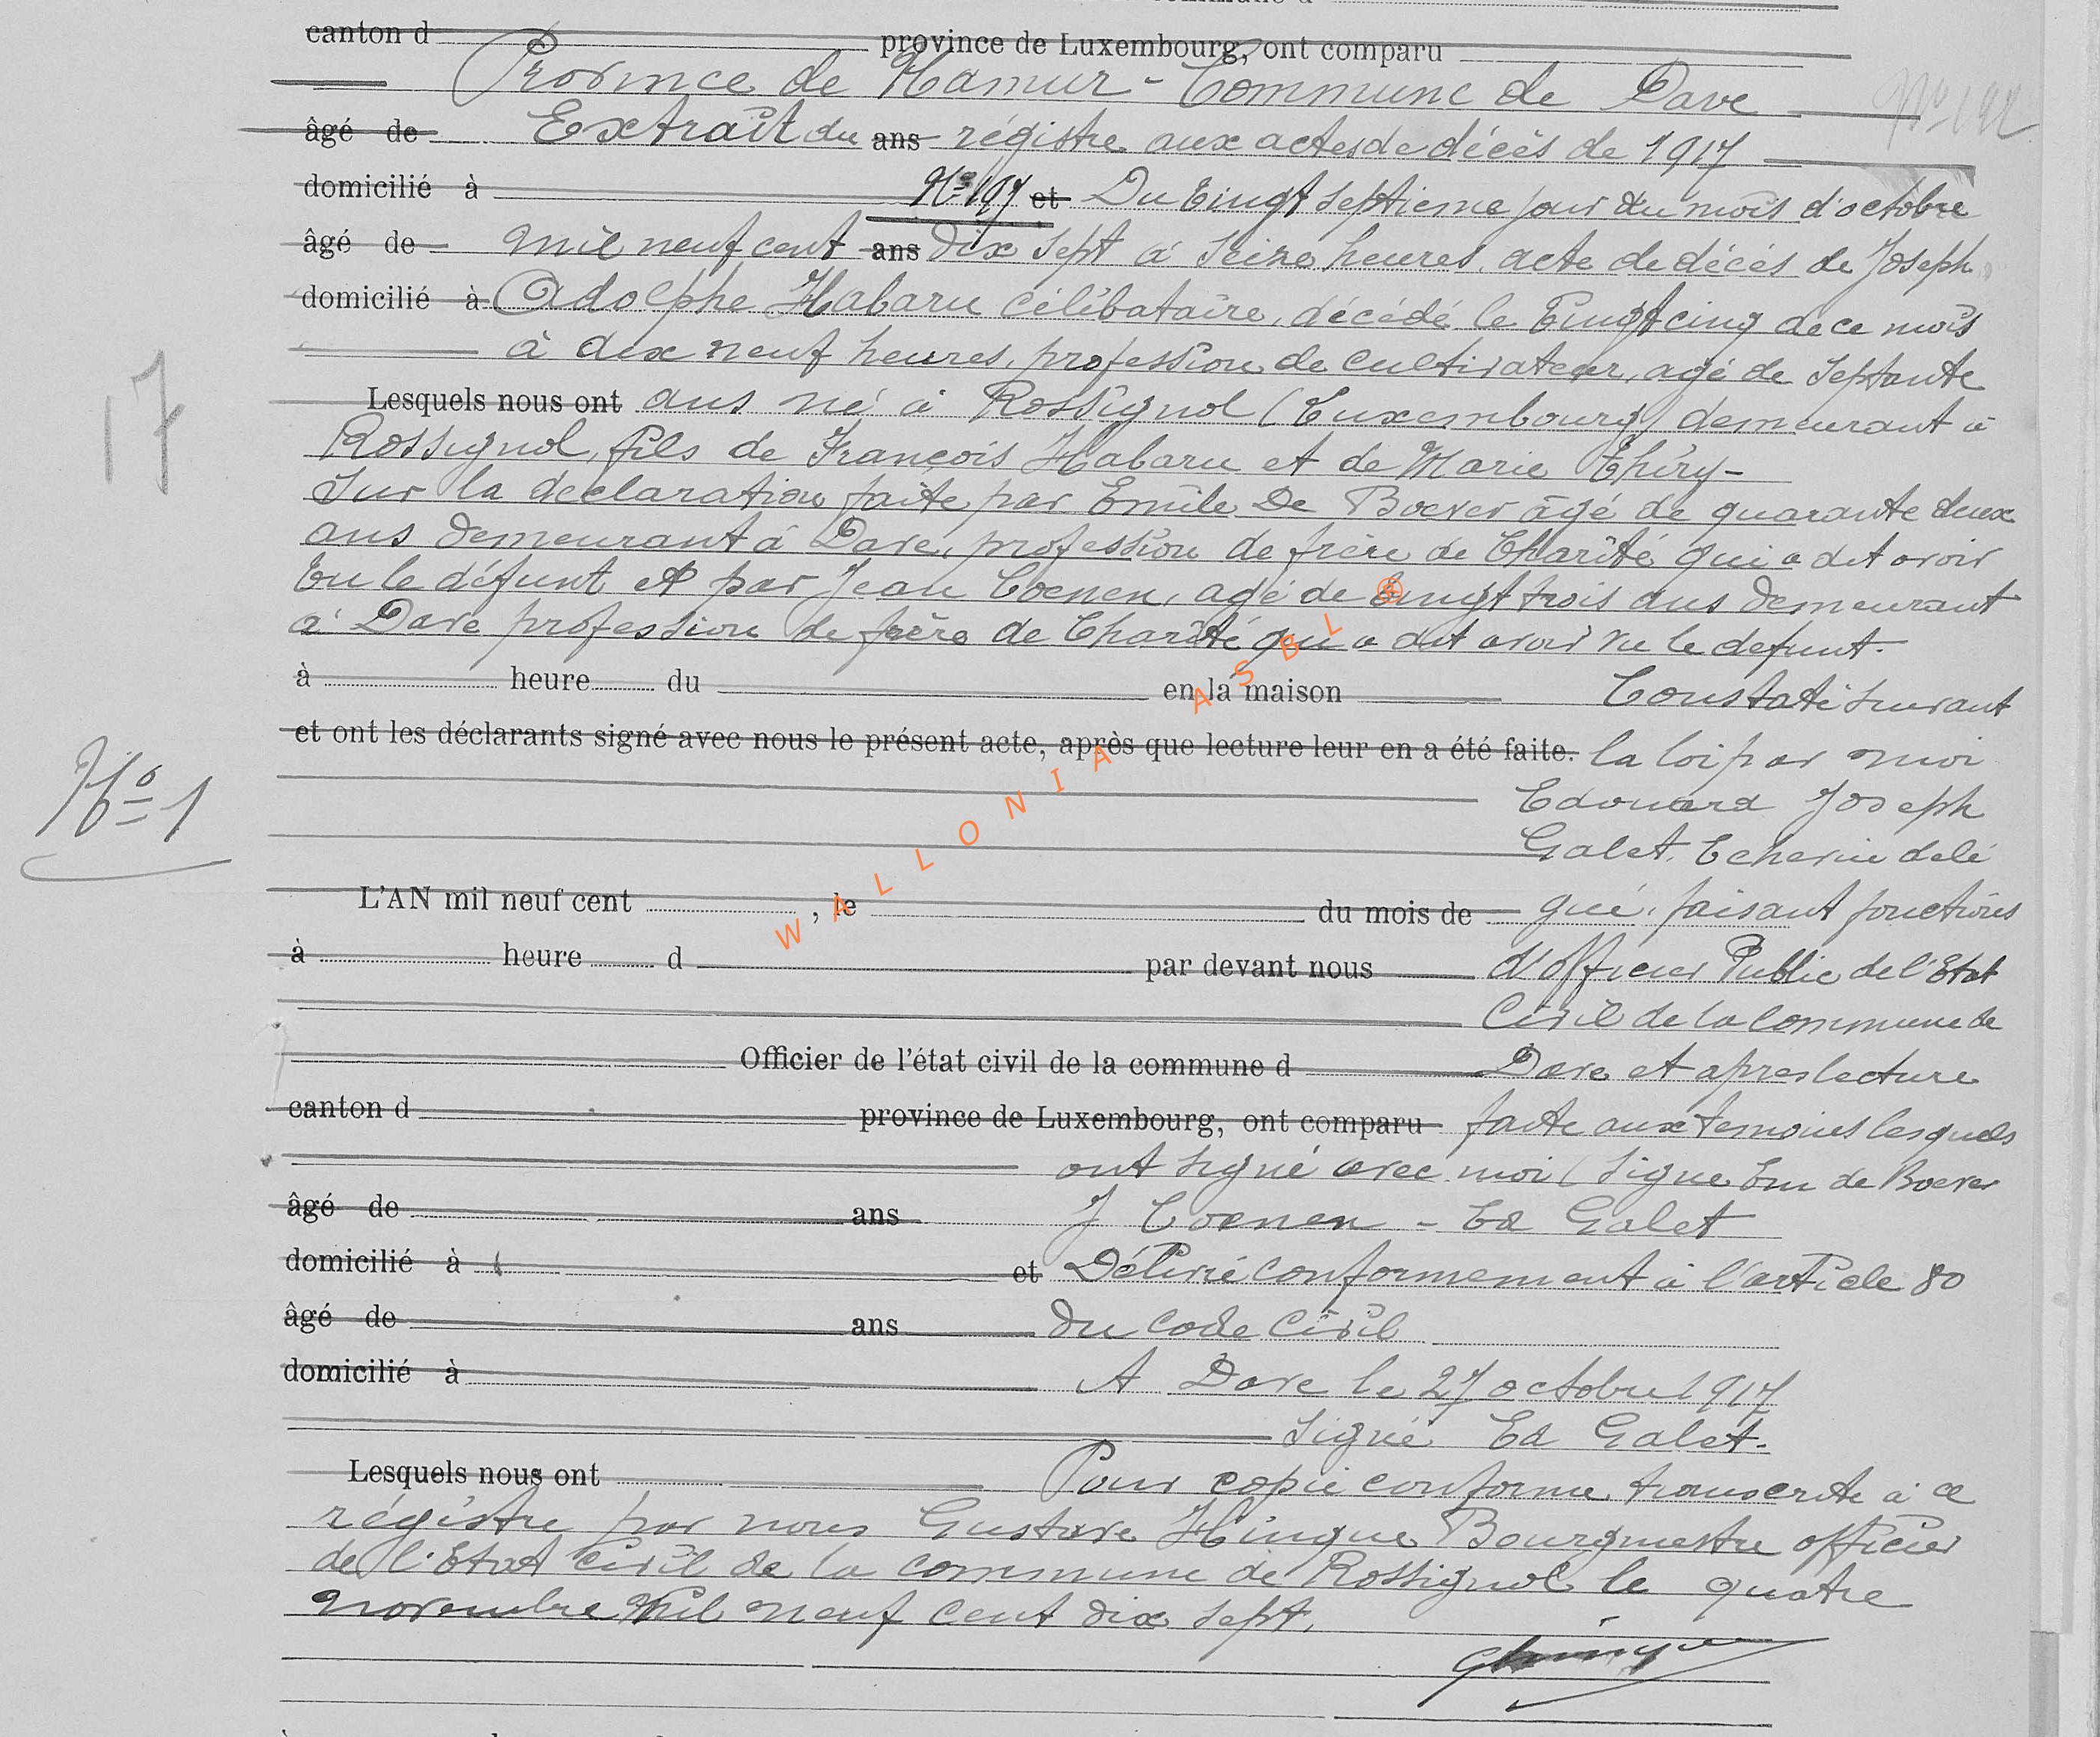 canton d province de Luxembourg, ont comparu
Province de Namur - Commune de Dave
âgé de Extrait du ans régistre aux actes de décès de 1917
domicilié à N° 197 et Du Vingt septieme jour du mois d'octobre
âgé de mil neuf cent ans dix sept à Seize heures, acte de décès de Joseph
domicilié à Adolphe Habaru célibataire, décédé le Vingt cinq de ce mois
à dix neuf heures, profession de cultivateur, agé de Septante
17
Lesquels nous ont ans né à Rossignol (Luxembourg) demeurant à
Rossignol, fils de François Habaru et de Marie Thiry -
Sur la déclaration faite par Emile De Boever âgé de quarante deux
ans demeurant à Dave, profession de frère de Charité qui a dit avoir
Vu le défunt et par Jean Coenen, agé de Vingt trois ans demeurant
à Dave profession de frère de Charité qui a dit avoir vu le defunt.
à heure du en la maison Constaté suivant
et ont les déclarants signé avec nous le présent acte, après que lecture leur en a été faite. la loi par moi
N° 1
Edouard Joseph
Galet, Echevin délé
L'AN mil neuf cent , le du mois de gué, faisant fonctions
à heure d par devant nous d'officier Public de l'Etat
Civil de la Commune de
Officier de l'état civil de la commune d Dave et apres lecture
canton d province de Luxembourg, ont comparu faite aux temoins lesquels
ont signé avec moi (Signe Em de Boever
âgé de ans J Coenen - Ed Galet
domicilié à et Délivré conformement à l'article 80
âgé de ans du Code Civil
domicilié à A Dave le 27 octobre 1917
Signé Ed Galet.
Lesquels nous ont Pour copie conforme transcrite à ce
régistre par nous Gustave Hinque Bourgmestre officier
de l'Etat Civil de la commune de Rossignol le quatre
novembre Mil neuf cent dix sept.
GHinque
WALLONIA ASBL ®